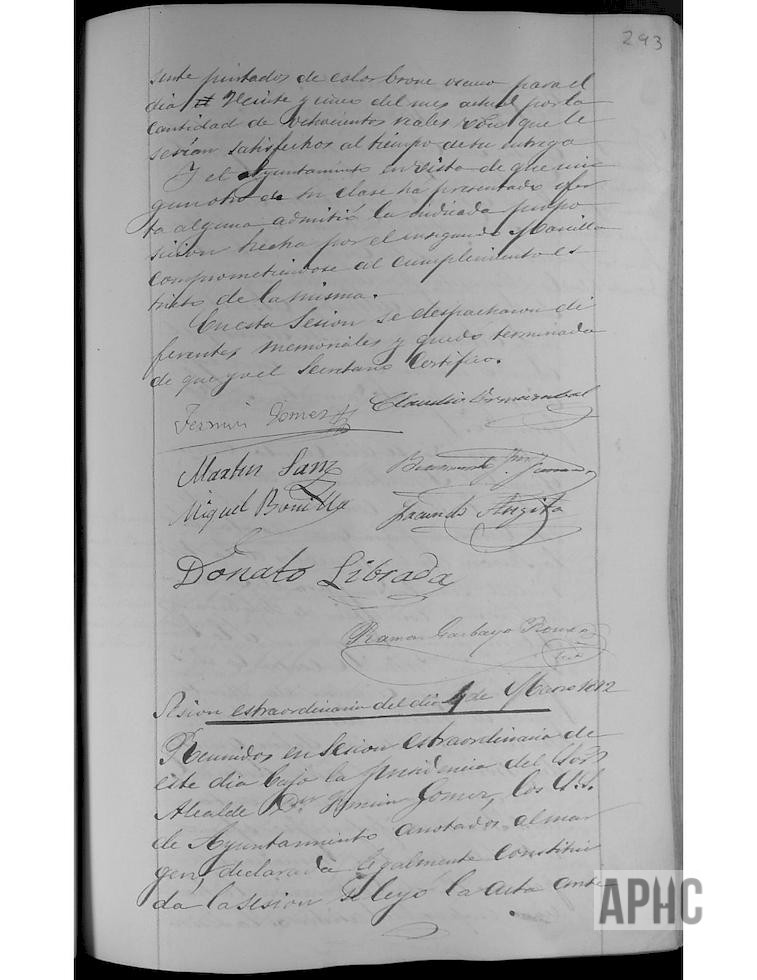 293
sente pintados de color bronce oscuro para el
dia Veinte y cinco del mes actual por la
cantidad de ochocientos reales von que le
serian satisfechos al tiempo de su entrega
Y el Ayuntamiento en vista de que nin
gun otro de su clase ha presentado ofer
ta alguna admitió la indicada propo
sicion hecha por el
comprometiendose al cumplimiento es
tricto de la misma.
En esta Sesion se despacharon di
ferentes memoriales y quedó terminada
de que yo el Secretario Certifico.
Fermin Gomez Claudio
Martin Sanz
Miguel Bonilla Facundo Angita
Donato Librada
Ramon Garbayo Romeo
Srio
Sesion estraordinaria del dia 4 de Marzo 1892
Reunidos en Sesion estraordinaria de
este dia bajo la presidencia del Sor
Alcalde Dn Fermin Gomez, los S.S.
de Ayuntamiento anotados al mar
gen, declarada legalmente constitui
da la sesion se leyó la acta ante
APHC